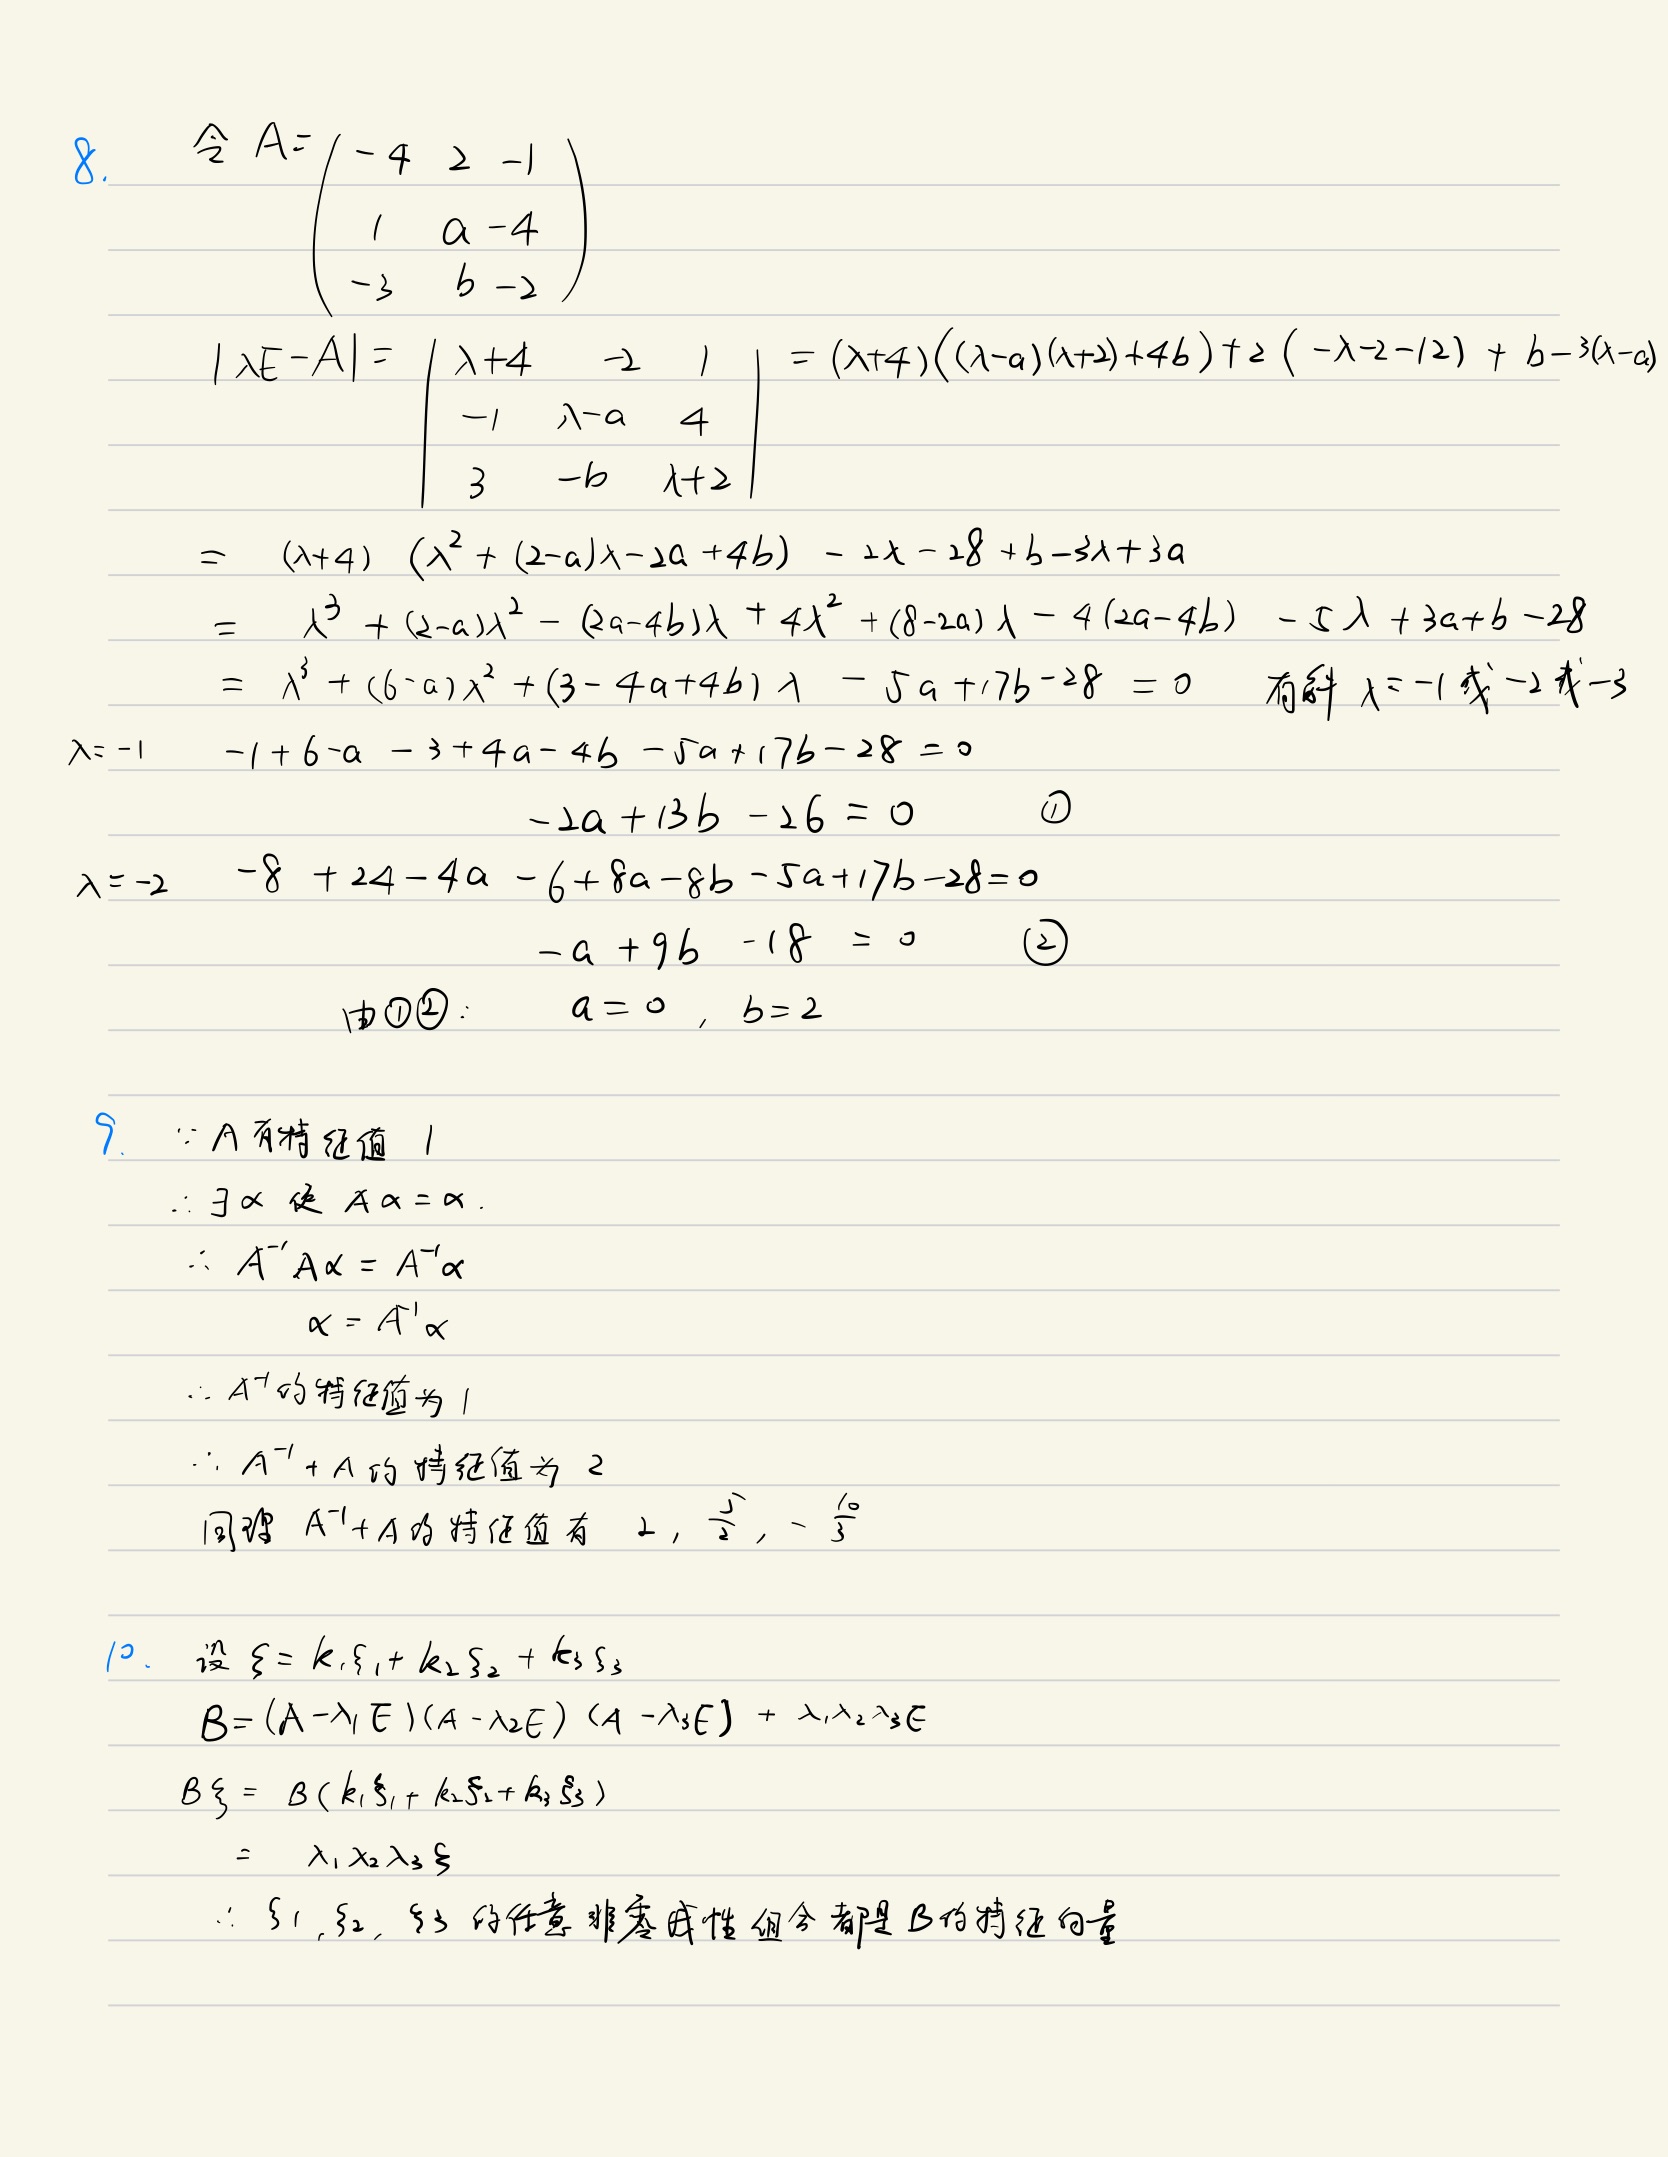 8. 令 A = ( -4 2 -1
1 a -4
-3 b -2 )
|λE-A| = | λ+4 -2 1 | = (λ+4)((λ-a)(λ+2)+4b)+2(-λ-2-12) + b-3(λ-a)
-1 λ-a 4
3 -b λ+2
= (λ+4) (λ² + (2-a)λ-2a+4b) - 2λ - 28 + b-3λ+3a
= λ³ + (2-a)λ² - (2a-4b)λ + 4λ² + (8-2a)λ - 4(2a-4b) - 5λ + 3a+b-28
= λ³ + (6-a)λ² + (3-4a+4b)λ - 5a+17b-28 = 0 有解 λ=-1或-2或-3
λ=-1 -1+6-a -3+4a-4b -5a+17b-28=0
-2a+13b-26=0 ①
λ=-2 -8+24-4a-6+8a-8b-5a+17b-28=0
-a+9b-18=0 ②
由①②: a=0, b=2
9. ∵ A有特征值 1
∴ ∃α 使 Aα=α.
∴ A⁻¹Aα = A⁻¹α
α = A⁻¹α
∴ A⁻¹的特征值为1
∴ A⁻¹+A的特征值为 2
同理 A⁻¹+A的特征值有 2, 5/2, -10/3
10. 设 ξ = k₁ξ₁+k₂ξ₂+k₃ξ₃
B=(A-λ₁E)(A-λ₂E)(A-λ₃E) + λ₁λ₂λ₃E
Bξ = B(k₁ξ₁+k₂ξ₂+k₃ξ₃)
= λ₁λ₂λ₃ξ
∴ ξ1, ξ2, ξ3 的任意非零线性组合都是B的特征向量